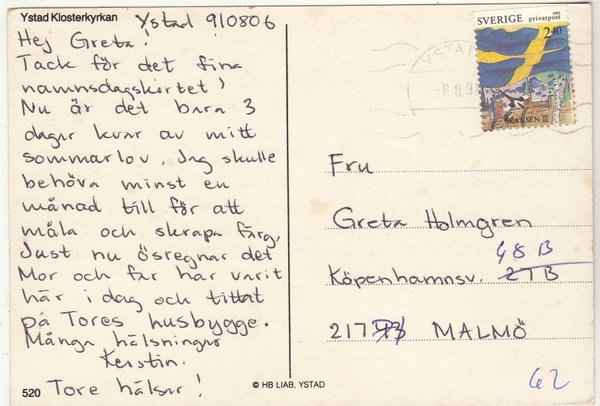 Ystad Klosterkyrkan
Ystad 910806
Hej Greta!
Tack för det fina
namnsdagskortet!
Nu är det bara 3
dagar kvar av mitt
sommarlov. Jag skulle
behöva minst en
månad till för att
måla och skrapa färg.
Just nu ösregnar det
Mor och far har varit
här i dag och tittat
på Tores husbygge.
Många hälsningar
Kerstin.
Tore hälsar!
520
© HB LIAB, YSTAD
SVERIGE 1991 privatpost
2.40
SKANSEN
YSTAD
8.8.9
Fru
Greta Holmgren
48 B
Köpenhamnsv. 27B
217 MALMÖ
62